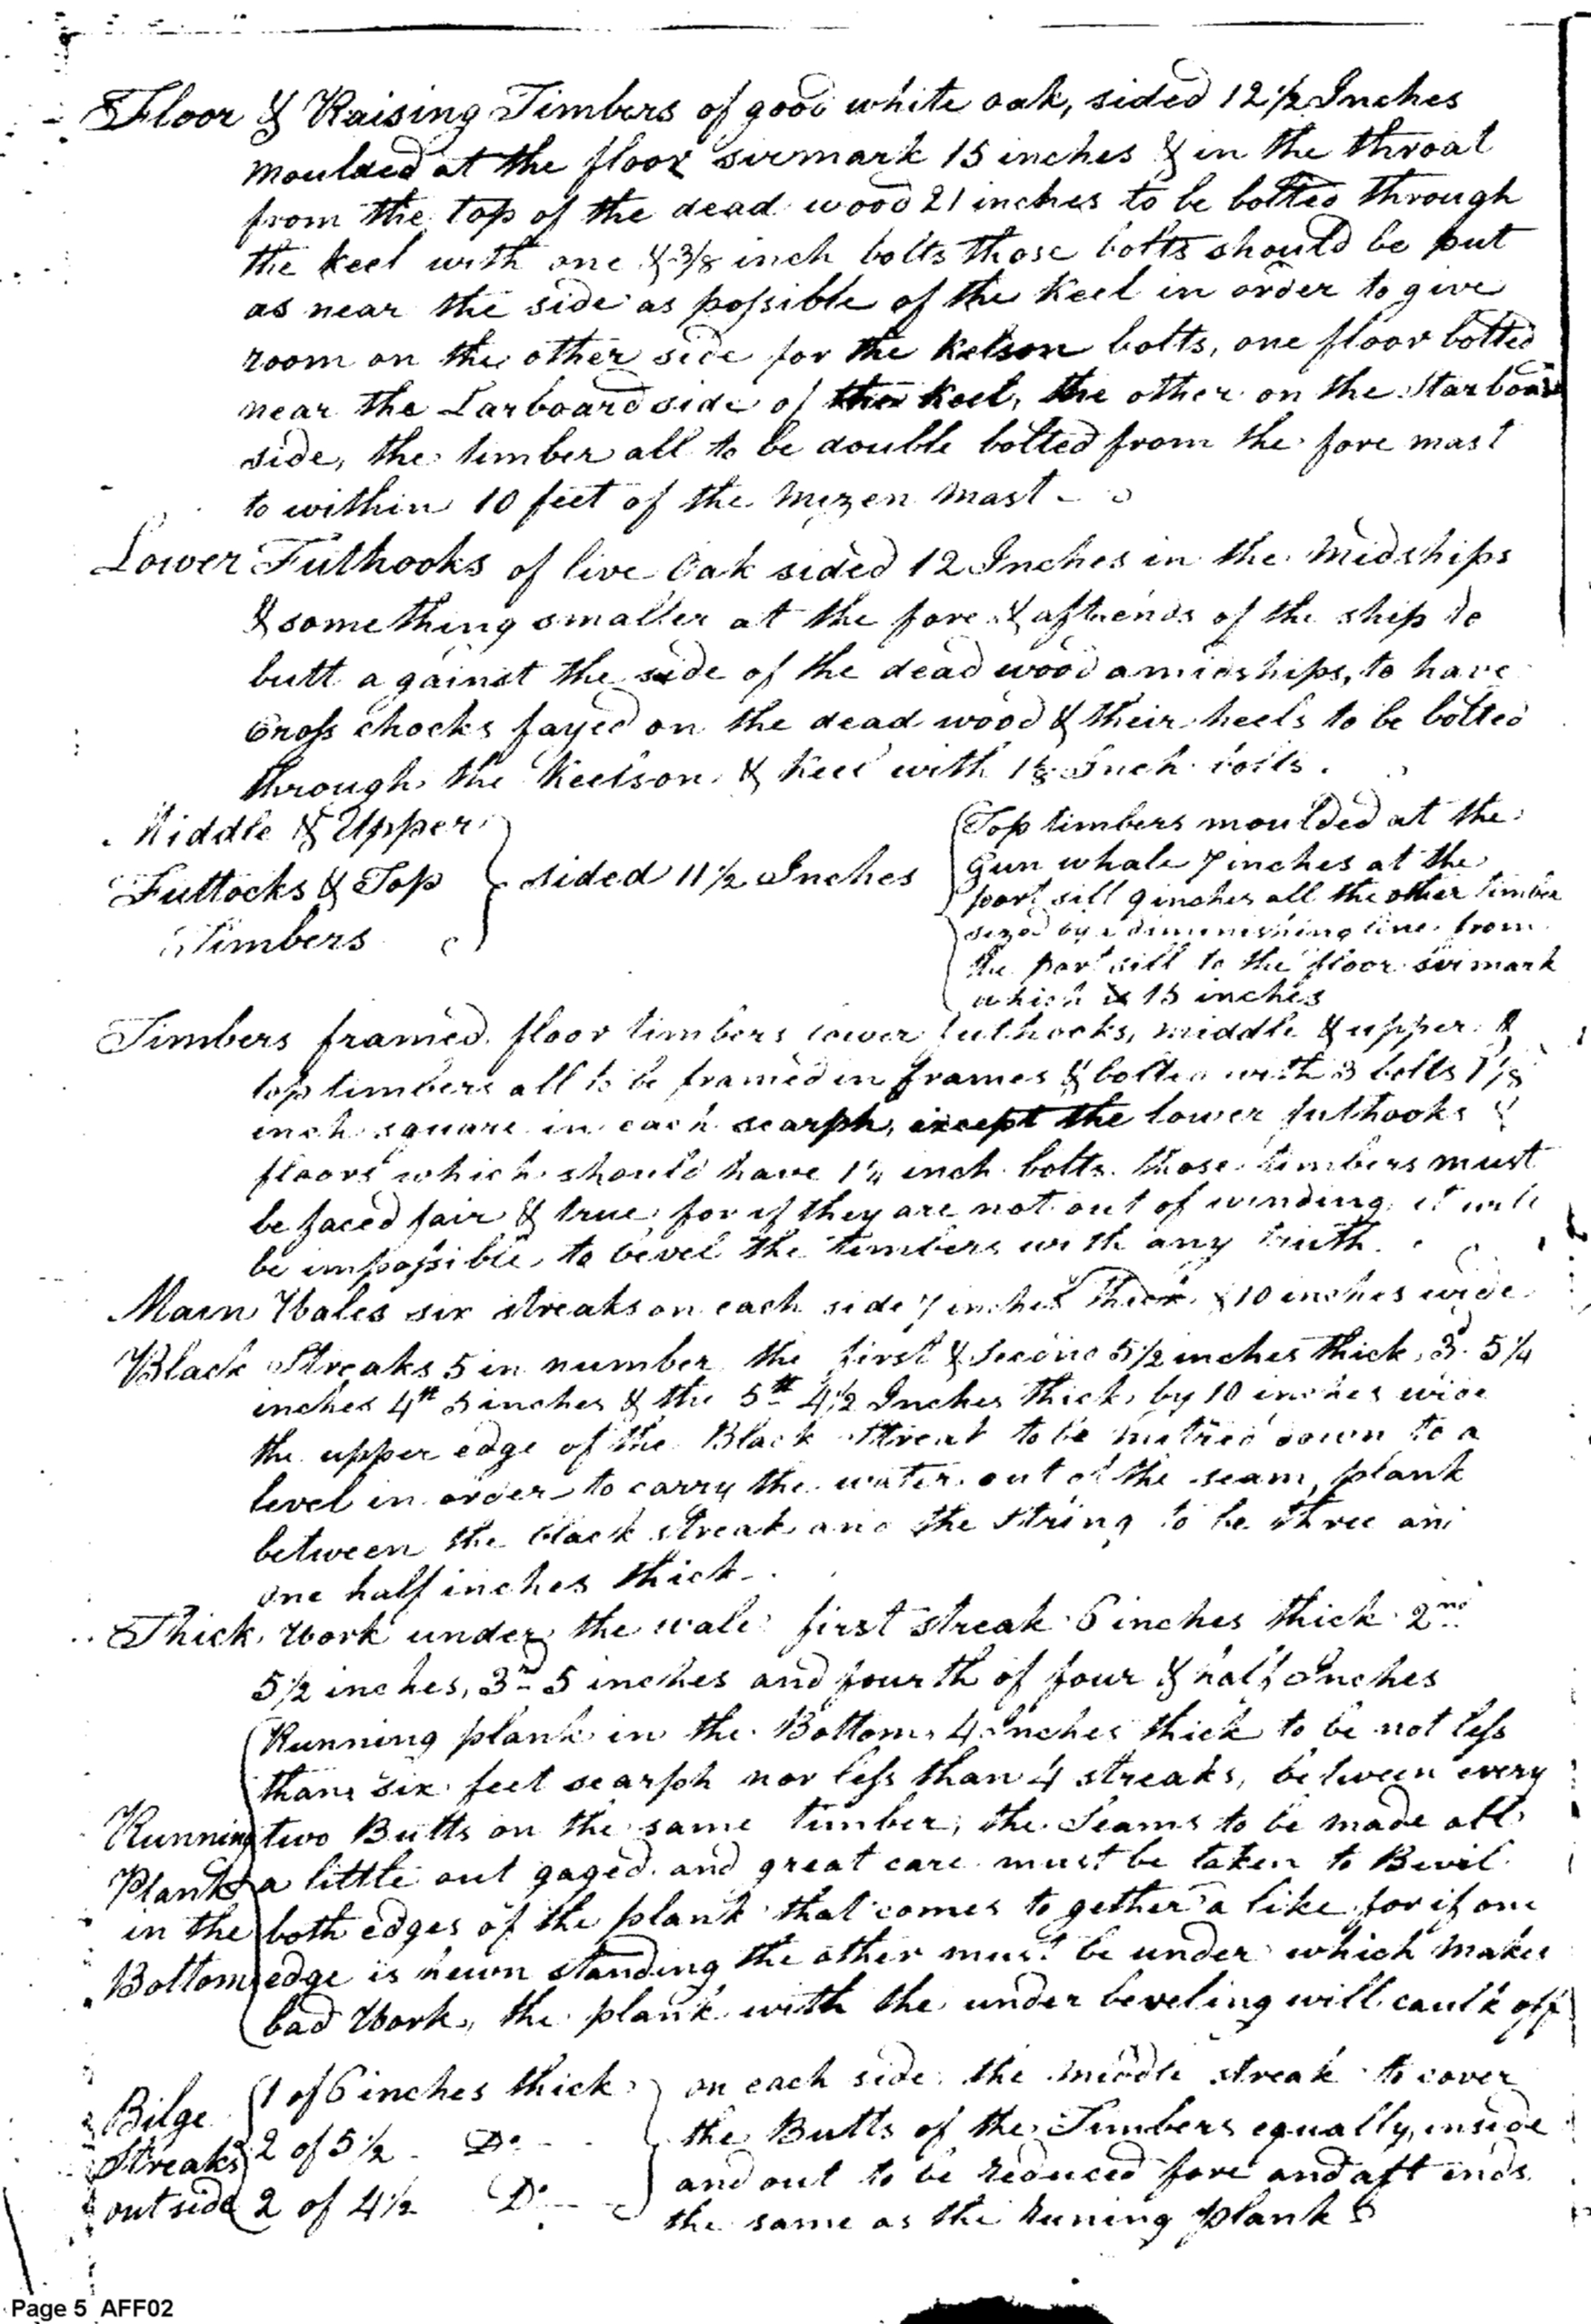 Floor & Raising Timbers of good white oak, sided 12 1/2 Inches
moulded at the floor sirmark 15 inches & in the throat
from the top of the dead wood 21 inches to be bolted through
the keel with one & 3/8 inch bolts those bolts should be put
as near the side as possible of the Keel in order to give
room on the other side for the Kelson bolts, one floor bolted
near the Larboard side of the Keel, the other on the Starboard
side, the timber all to be double bolted from the fore mast
to within 10 feet of the Mizen Mast
Lower Futhooks of live Oak sided 12 Inches in the Midships
& something smaller at the fore & aft ends of the ship to
butt against the side of the dead wood amidships, to have
Cross chocks fayed on the dead wood & their heels to be bolted
through the Keelson & Keel with 1 1/8 Inch bolts.
Middle & Upper
Futtocks & Top
Timbers
sided 11 1/2 Inches
Top timbers moulded at the
Gun whale 7 inches at the
port sill 9 inches all the other timber
sized by a diminishing line from
the port sill to the floor sirmark
which is 15 inches
Timbers framed. floor timbers lower futhooks, middle & upper &
top timbers all to be framed in frames & bolted with 3 bolts 1 1/8
inch square in each scarph, except the lower futhooks &
floors which should have 1 1/4 inch bolts. those timbers must
be faced fair & true for if they are not out of winding it will
be impossible to bevel the timbers with any truth.
Main Wales six streaks on each side 7 inches thick & 10 inches wide
Black Streaks 5 in number the first & second 5 1/2 inches thick, 3d 5 1/4
inches 4th 5 inches & the 5th 4 1/2 Inches thick by 10 inches wide
the upper edge of the Black Streak to be mitred down to a
level in order to carry the water out of the seam, plank
between the black streak and the String to be three and
one half inches thick
Thick Work under the wale first streak 6 inches thick 2nd
5 1/2 inches, 3rd 5 inches and fourth of four & half Inches
Running
Plank
in the
Bottom
Running plank in the Bottom 4 Inches thick to be not less
than six feet scarph nor less than 4 streaks, between every
two Butts on the same timber, the Seams to be made all
a little out gaged and great care must be taken to Bevil
both edges of the plank that comes to gether a like for if one
edge is hewn standing the other must be under which makes
bad Work, the plank with the under beveling will caulk off
Bilge
Streaks
outside
1 of 6 inches thick
2 of 5 1/2 Do
2 of 4 1/2 Do
on each side the middle streak to cover
the Butts of the Timbers equally, inside
and out to be reduced fore and aft ends
the same as the Runing plank
Page 5 AFF02